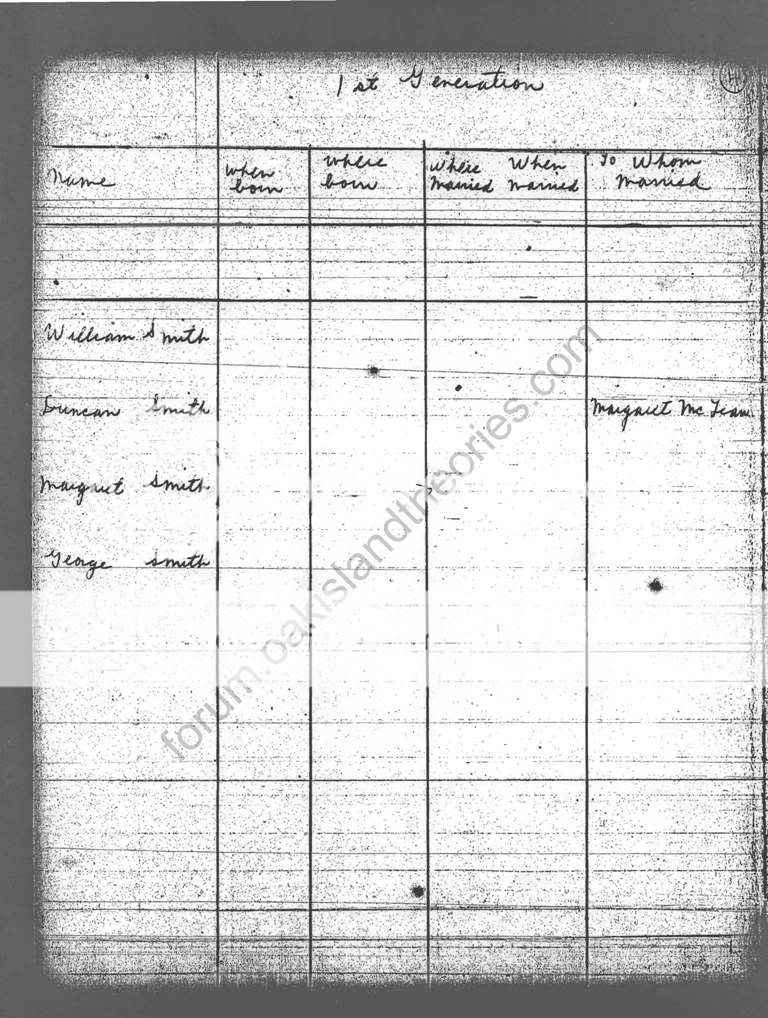 1st Generation
H
Name
when born
where born
where Married
When married
To Whom Married
William Smith
Duncan Smith
Margaret Mc
Margaret Smith
George Smith
forum.oakislandtheories.com